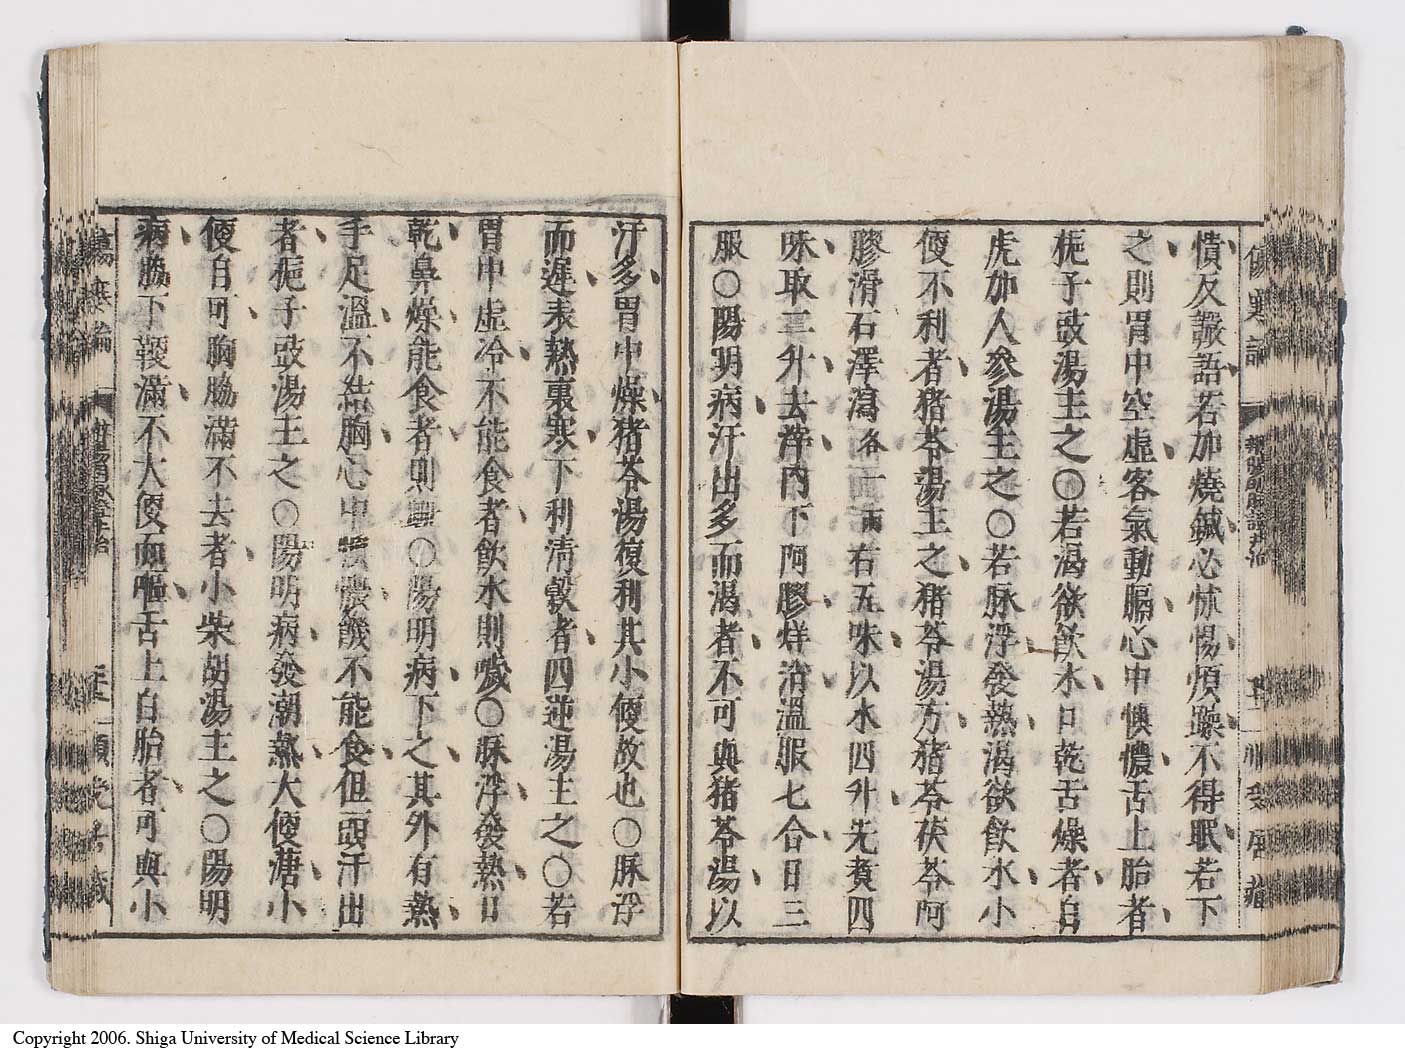 憒反讝語若加燒鍼必怵惕煩躁不得眠若下
之則胃中空虛客氣動膈心中懊憹舌上胎者
梔子豉湯主之〇若渴欲飲水口乾舌燥者白
虎加人參湯主之〇若脉浮發熱渴欲飲水小
便不利者猪苓湯主之猪苓湯方猪苓茯苓阿
膠滑石澤瀉各一兩右五味以水四升先煑四
味取二升去滓內下阿膠烊消溫服七合日三
服〇陽明病汗出多而渴者不可與猪苓湯以
汗多胃中燥猪苓湯復利其小便故也〇脉浮
而遲表熱裏寒下利清穀者四逆湯主之〇若
胃中虛冷不能食者飲水則噦〇脉浮發熱口
乾鼻燥能食者則衄〇陽明病下之其外有熱
手足溫不結胸心中懊憹饑不能食但頭汗出
者梔子豉湯主之〇陽明病發潮熱大便溏小
便自可胸脇滿不去者小柴胡湯主之〇陽明
病脇下鞕滿不大便而嘔舌上白胎者可與小
傷寒論
Copyright 2006. Shiga University of Medical Science Library